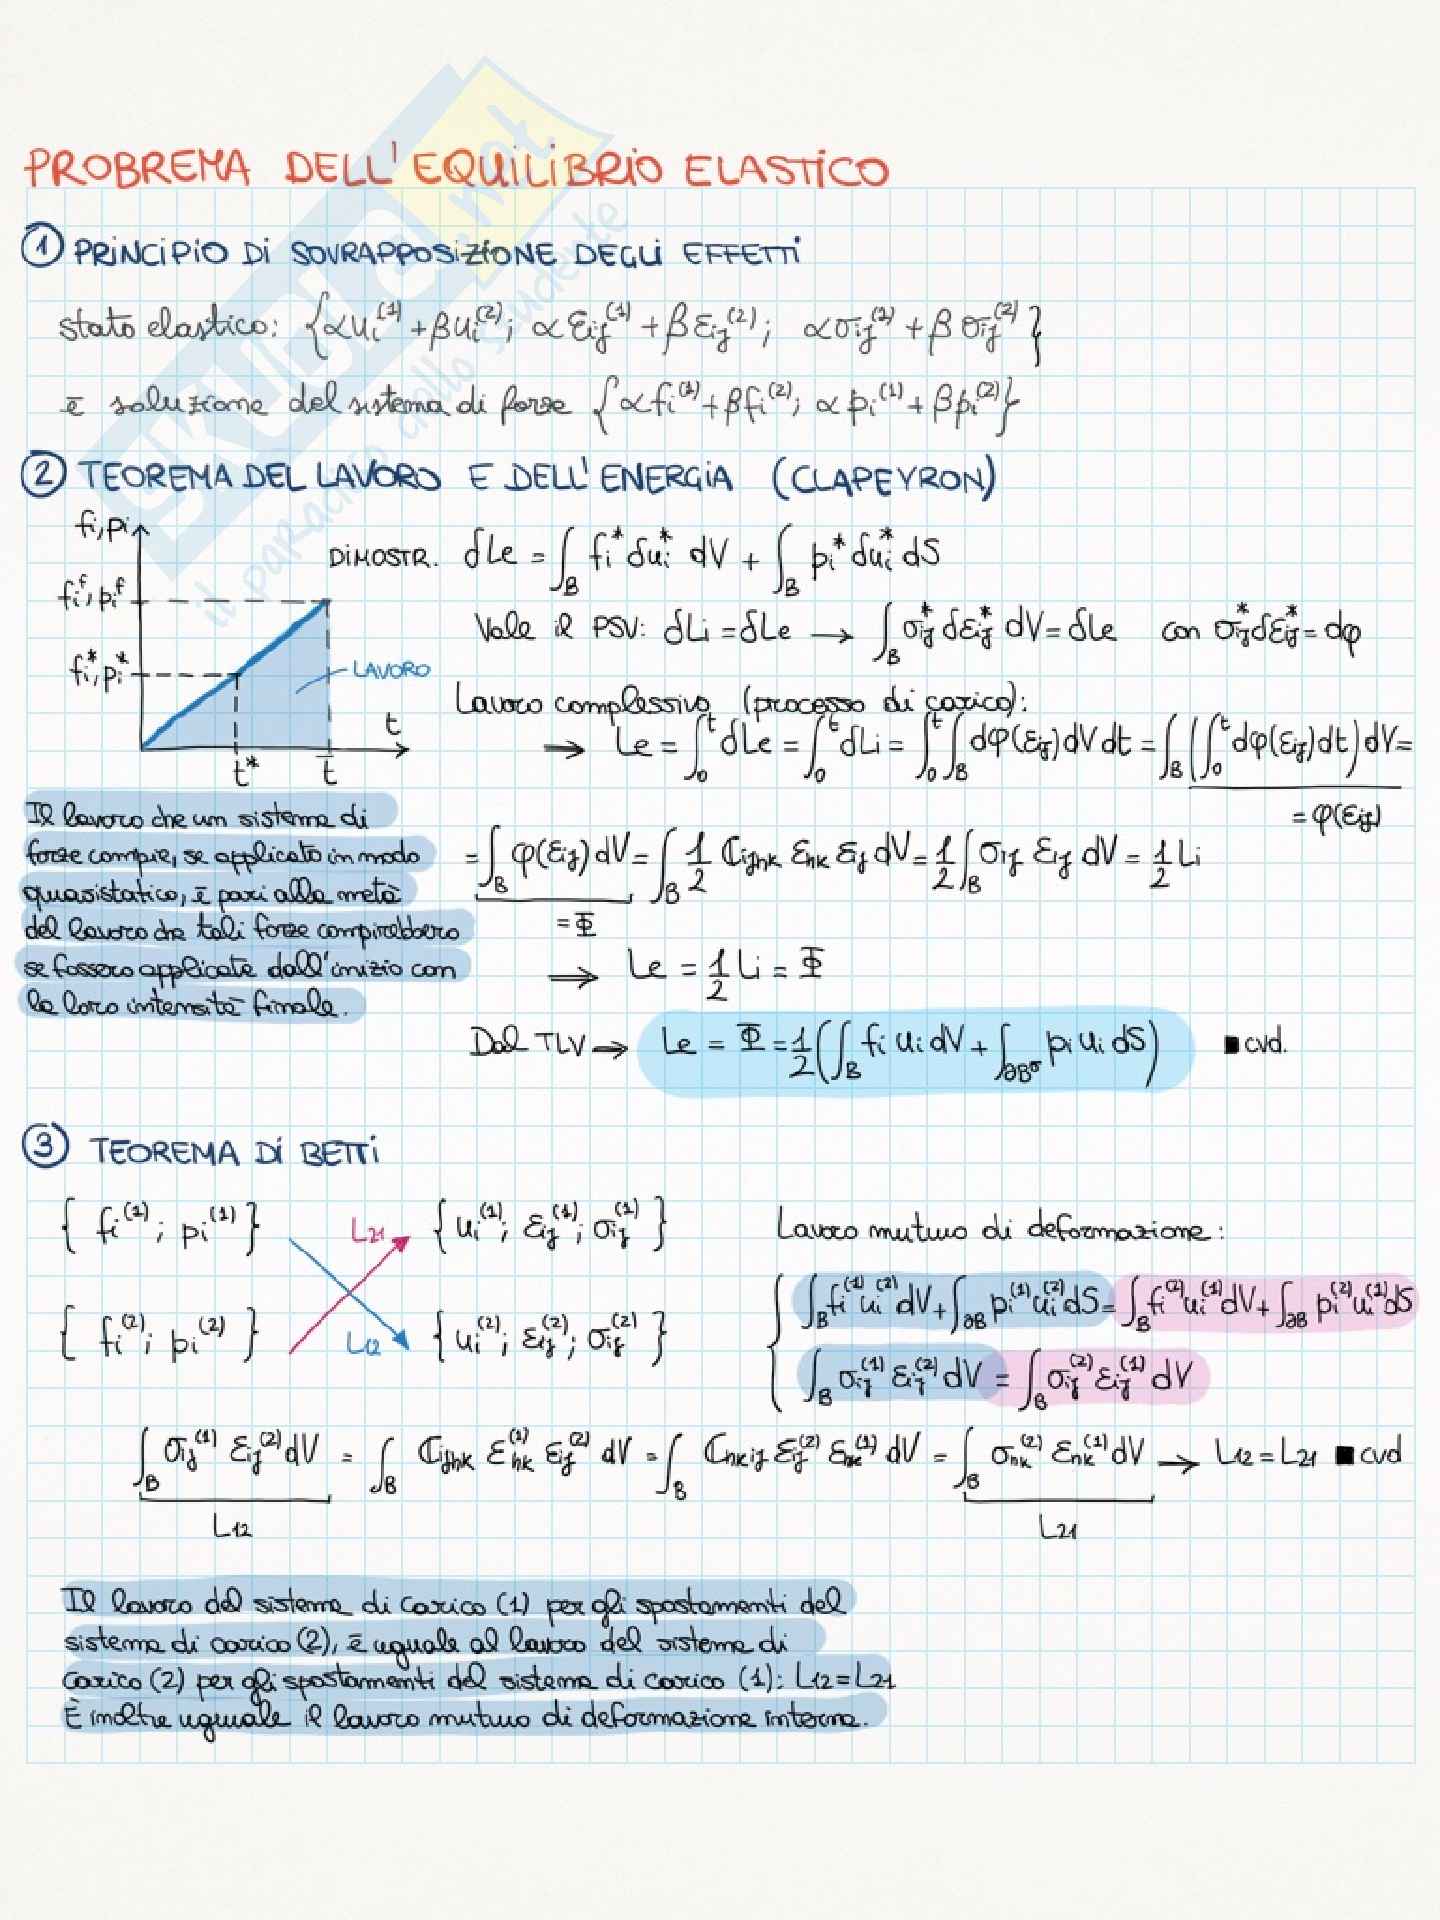 PROBREMA DELL'EQUILIBRIO ELASTICO
① PRINCIPIO DI SOVRAPPOSIZIONE DEGLI EFFETTI
stato elastico: {αui⁽¹⁾+βui⁽²⁾; αεij⁽¹⁾+βεij⁽²⁾; ασij⁽¹⁾+βσij⁽²⁾}
è soluzione del sistema di forze {αfi⁽¹⁾+βfi⁽²⁾; αpi⁽¹⁾+βpi⁽²⁾}
② TEOREMA DEL LAVORO E DELL'ENERGIA (CLAPEYRON)
fi, pi
fiᶠ, piᶠ
fi*, pi*
LAVORO
t
t* t̄
DIMOSTR. δLe = ∫B fi* δui* dV + ∫B pi* δui* dS
Vale il PSV: δLi = δLe → ∫B σij* δεij* dV = δLe con σij* dεij* = dφ
Lavoro complessivo (processo di carico):
⇒ Le = ∫₀ᵗ δLe = ∫₀ᵗ δLi = ∫₀ᵗ ∫B dφ(εij) dV dt = ∫B (∫₀ᵗ dφ(εij) dt) dV =
= φ(εij)
= ∫B φ(εij) dV = ∫B 1/2 ℂijhk εhk εij dV = 1/2 ∫B σij εij dV = 1/2 Li
= Φ
⇒ Le = 1/2 Li = Φ
Dal TLV ⇒ Le = Φ = 1/2 (∫B fi ui dV + ∫∂Bσ pi ui dS) ■ cvd.
Il lavoro che un sistema di
forze compie, se applicato in modo
quasistatico, è pari alla metà
del lavoro che tali forze compirebbero
se fossero applicate dall'inizio con
la loro intensità finale.
③ TEOREMA DI BETTI
{ fi⁽¹⁾; pi⁽¹⁾ } L21 { ui⁽¹⁾; εij⁽¹⁾; σij⁽¹⁾ }
{ fi⁽²⁾; pi⁽²⁾ } L12 { ui⁽²⁾; εij⁽²⁾; σij⁽²⁾ }
Lavoro mutuo di deformazione:
∫B fi⁽¹⁾ ui⁽²⁾ dV + ∫∂B pi⁽¹⁾ ui⁽²⁾ dS = ∫B fi⁽²⁾ ui⁽¹⁾ dV + ∫∂B pi⁽²⁾ ui⁽¹⁾ dS
∫B σij⁽¹⁾ εij⁽²⁾ dV = ∫B σij⁽²⁾ εij⁽¹⁾ dV
∫B σij⁽¹⁾ εij⁽²⁾ dV = ∫B ℂijhk εhk⁽¹⁾ εij⁽²⁾ dV = ∫B ℂhkij εij⁽²⁾ εhk⁽¹⁾ dV = ∫B σhk⁽²⁾ εhk⁽¹⁾ dV → L12 = L21 ■ cvd
L12 L21
Il lavoro del sistema di carico (1) per gli spostamenti del
sistema di carico (2), è uguale al lavoro del sistema di
carico (2) per gli spostamenti del sistema di carico (1): L12=L21
È inoltre uguale il lavoro mutuo di deformazione interna.
SKUOLA.net
il paradiso dello studente